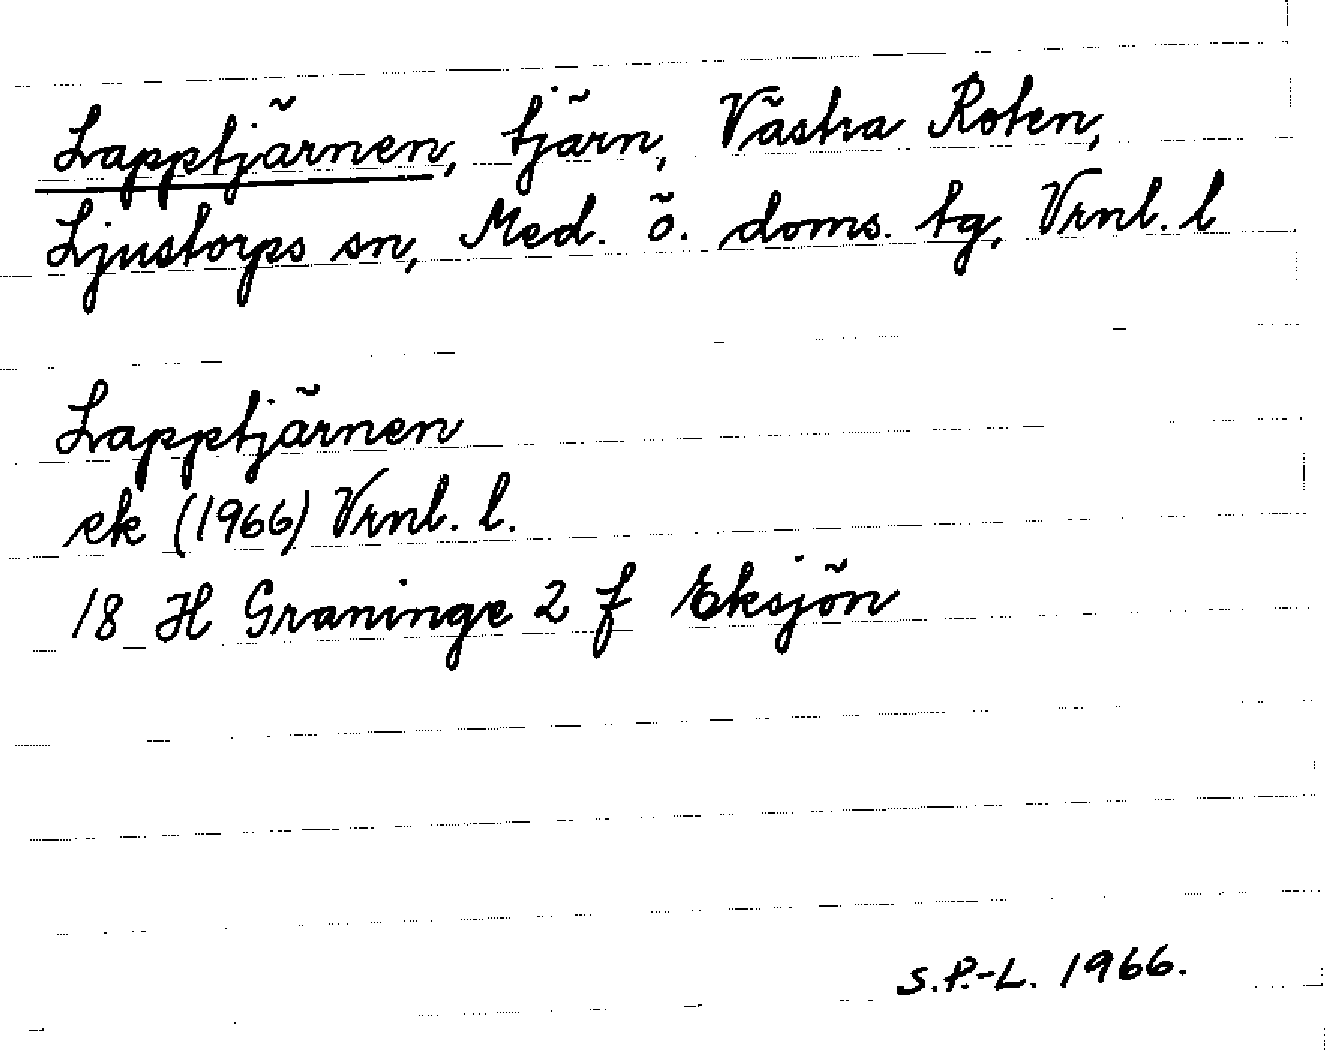 Lapptjärnen, tjärn, Västra Roten,
Ljustorps sn, Med. ö. doms. tg, Vrnl. l
Lapptjärnen
ek (1966) Vrnl. l.
18 H Graninge 2 f Eksjön
S.P.-L. 1966.